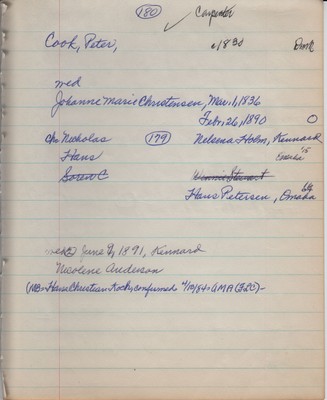 180 Carpenter
Cook, Peter, c1830 Dmk
med
Johanne Marie Christensen, Mar. 1, 1836
Feb. 26, 1890 O
Ch: Nicholas 179 Nelsena Holm, Kennard
Hans Omaha '15
Soren C Winnie Stewart
Hans Petersen, Omaha
med 2) June 9, 1891, Kennard
Nicoline Anderson
(NB=Hans Christian Koch, confirmed 4/13/84=GMA (ELC)-